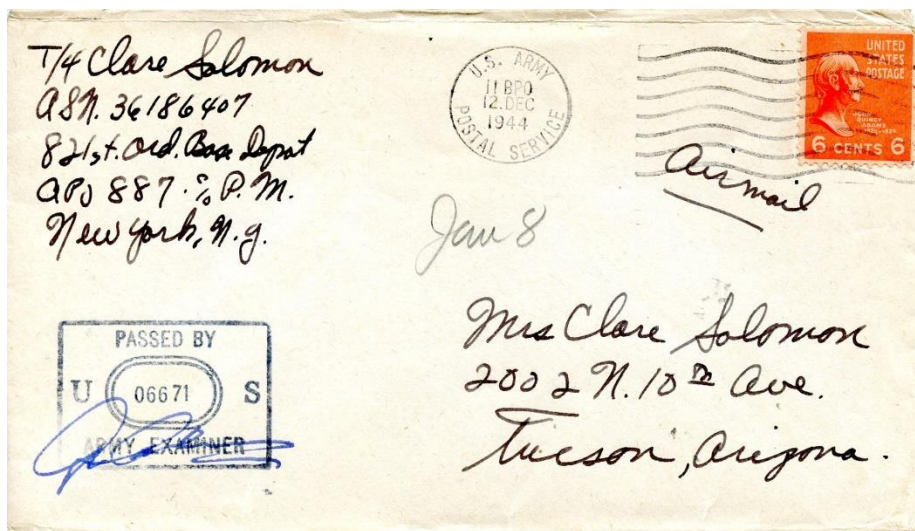 T/4 Clare Solomon
ASN. 36186407
821st. Ord. Base Depot
APO 887 · % P.M.
New York, N.Y.
U.S. ARMY
11 BPO
12.DEC
1944
POSTAL SERVICE
UNITED
STATES
POSTAGE
JOHN
QUINCY
ADAMS
6 CENTS 6
Airmail
Jan 8
PASSED BY
U 06671 S
ARMY EXAMINER
Mrs Clare Solomon
2002 N. 10th Ave.
Tucson, Arizona.